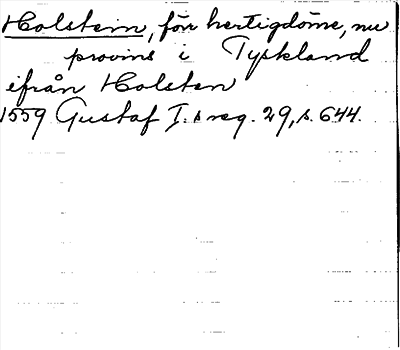 Holstein, förr hertigdöme, nu
provins i Tyskland
ifrån Holsten
1559 Gustaf I:s reg. 29, s. 644.